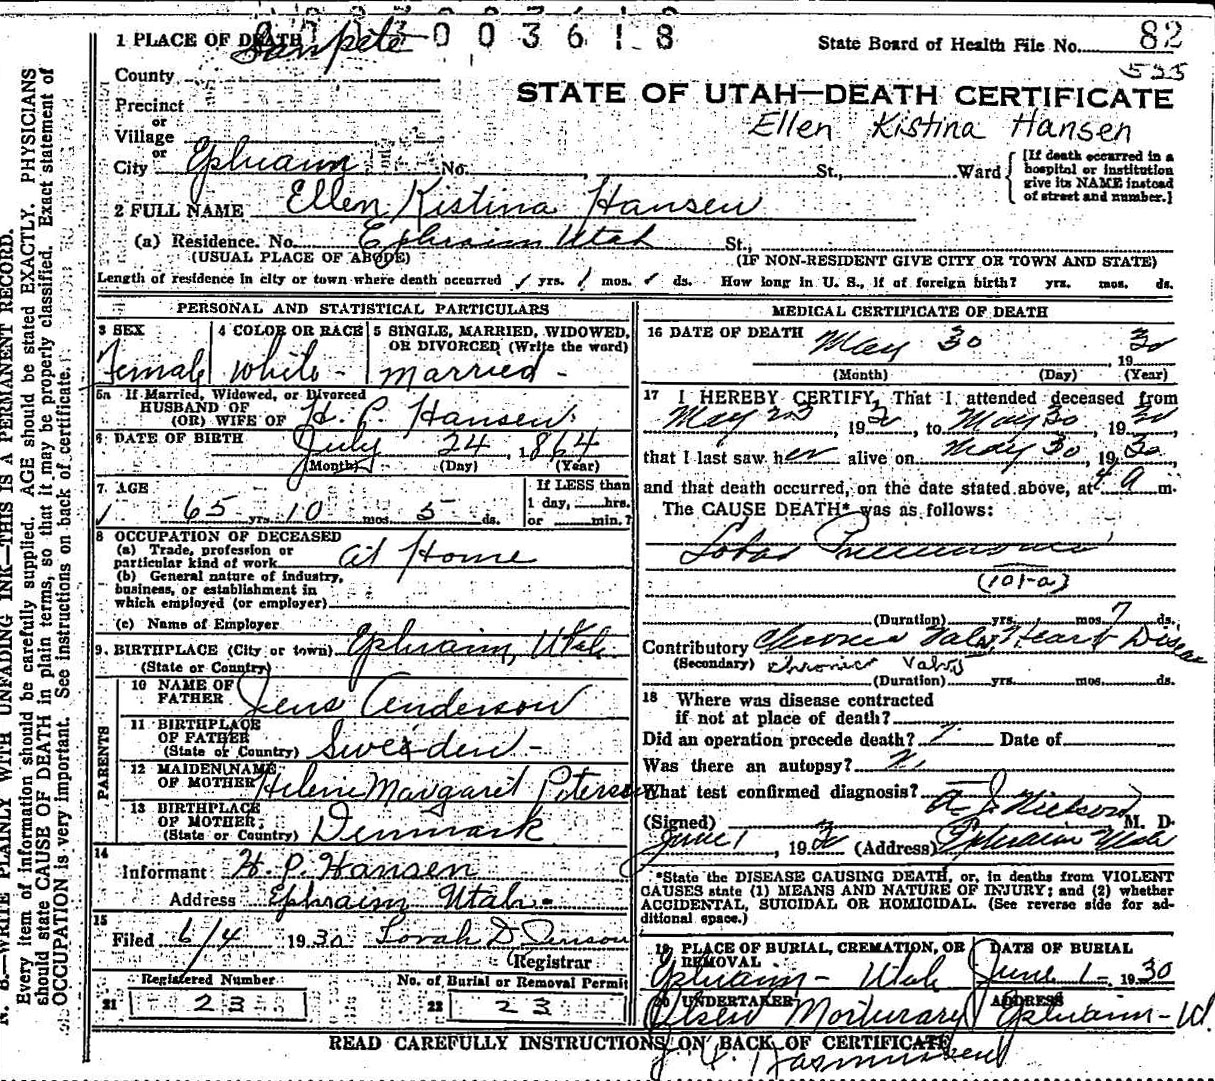 3003618
1 PLACE OF DEATH Sanpete
State Board of Health File No. 82
535
County
STATE OF UTAH—DEATH CERTIFICATE
Precinct
or
Village
Ellen Kistina Hansen
or
City Ephraim No. St., Ward {[If death occurred in a hospital or institution give its NAME instead of street and number.]
2 FULL NAME Ellen Kistina Hansen
(a) Residence. No. Ephraim Utah St.,
(USUAL PLACE OF ABODE) (IF NON-RESIDENT GIVE CITY OR TOWN AND STATE)
Length of residence in city or town where death occurred yrs. mos. ds. How long in U. S., if of foreign birth? yrs. mos. ds.
PERSONAL AND STATISTICAL PARTICULARS
3 SEX 4 COLOR OR RACE 5 SINGLE, MARRIED, WIDOWED,
OR DIVORCED (Write the word)
Female White - Married -
5a If Married, Widowed, or Divorced
HUSBAND OF
(OR) WIFE OF H. P. Hansen
6 DATE OF BIRTH July 24, 1864
(Month) (Day) (Year)
7 AGE If LESS than
1 day, hrs.
65 yrs. 10 mos. 5 ds. or min.?
8 OCCUPATION OF DECEASED
(a) Trade, profession or
particular kind of work at Home
(b) General nature of industry,
business, or establishment in
which employed (or employer)
(c) Name of Employer
9. BIRTHPLACE (City or town) Ephraim, Utah
(State or Country)
PARENTS
10 NAME OF
FATHER Jens Anderson
11 BIRTHPLACE
OF FATHER
(State or Country) Sweden -
12 MAIDEN NAME
OF MOTHER Helene Margaret Peterson
13 BIRTHPLACE
OF MOTHER
(State or Country) Denmark
14
Informant H. P. Hansen
Address Ephraim Utah -
15
Filed 6/4 1930
Registrar
Registered Number No. of Burial or Removal Permit
21 23 22 23
MEDICAL CERTIFICATE OF DEATH
16 DATE OF DEATH May 30 1930
(Month) (Day) (Year)
17 I HEREBY CERTIFY, That I attended deceased from
May 23, 1930, to May 30, 1930
that I last saw her alive on May 30, 1930
and that death occurred, on the date stated above, at 4 a m.
The CAUSE DEATH* was as follows:
Lobar Pneumonia
(101-a)
(Duration) yrs. mos. 7 ds.
Contributory Chronic Valv. Heart Disease
(Secondary) Chronic Valv
(Duration) yrs. mos. ds.
18 Where was disease contracted
if not at place of death?
Did an operation precede death? Date of
Was there an autopsy?
What test confirmed diagnosis?
(Signed) M. D.
June 1, 1930 (Address) Ephraim Utah
*State the DISEASE CAUSING DEATH, or, in deaths from VIOLENT
CAUSES state (1) MEANS AND NATURE OF INJURY; and (2) whether
ACCIDENTAL, SUICIDAL OR HOMICIDAL. (See reverse side for ad-
ditional space.)
19 PLACE OF BURIAL, CREMATION, OR REMOVAL DATE OF BURIAL
Ephraim - Utah June 1 - 1930
20 UNDERTAKER ADDRESS
Olsen Morturary Ephraim - Ut.
READ CAREFULLY INSTRUCTIONS ON BACK OF CERTIFICATE
Rasmussen
N. B.—WRITE PLAINLY WITH UNFADING INK—THIS IS A PERMANENT RECORD.
Every item of information should be carefully supplied. AGE should be stated EXACTLY. PHYSICIANS
should state CAUSE OF DEATH in plain terms, so that it may be properly classified. Exact statement of
OCCUPATION is very important. See instructions on back of certificate.